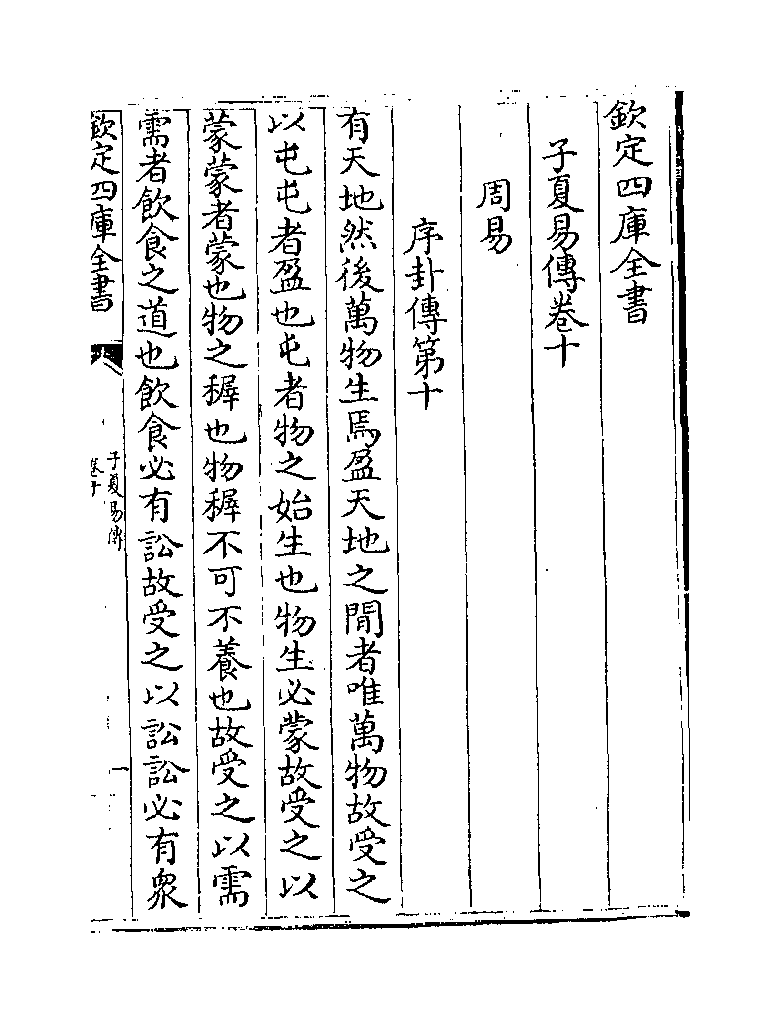 欽定四庫全書
子夏易傳卷十
周易
序卦傳第十
有天地然後萬物生焉盈天地之閒者唯萬物故受之
以屯屯者盈也屯者物之始生也物生必蒙故受之以
蒙蒙者蒙也物之穉也物穉不可不養也故受之以需
需者飲食之道也飲食必有訟故受之以訟訟必有衆
欽定四庫全書
子夏易傳
卷十
一